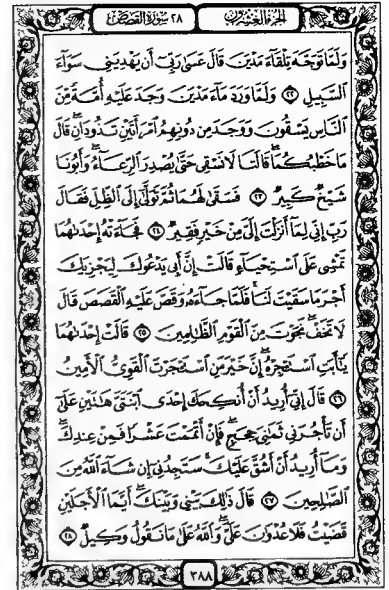 الجزء العشرون
٢٨ سورة القصص
وَلَمَّا تَوَجَّهَ تِلْقَآءَ مَدْيَنَ قَالَ عَسَىٰ رَبِّىٓ أَن يَهْدِيَنِى سَوَآءَ
ٱلسَّبِيلِ ٢٢ وَلَمَّا وَرَدَ مَآءَ مَدْيَنَ وَجَدَ عَلَيْهِ أُمَّةً مِّنَ
ٱلنَّاسِ يَسْقُونَ وَوَجَدَ مِن دُونِهِمُ ٱمْرَأَتَيْنِ تَذُودَانِ ۖ قَالَ
مَا خَطْبُكُمَا ۖ قَالَتَا لَا نَسْقِى حَتَّىٰ يُصْدِرَ ٱلرِّعَآءُ ۖ وَأَبُونَا
شَيْخٌ كَبِيرٌ ٢٣ فَسَقَىٰ لَهُمَا ثُمَّ تَوَلَّىٰٓ إِلَى ٱلظِّلِّ فَقَالَ
رَبِّ إِنِّى لِمَآ أَنزَلْتَ إِلَىَّ مِنْ خَيْرٍ فَقِيرٌ ٢٤ فَجَآءَتْهُ إِحْدَىٰهُمَا
تَمْشِى عَلَى ٱسْتِحْيَآءٍ قَالَتْ إِنَّ أَبِى يَدْعُوكَ لِيَجْزِيَكَ
أَجْرَ مَا سَقَيْتَ لَنَا ۚ فَلَمَّا جَآءَهُۥ وَقَصَّ عَلَيْهِ ٱلْقَصَصَ قَالَ
لَا تَخَفْ ۖ نَجَوْتَ مِنَ ٱلْقَوْمِ ٱلظَّـٰلِمِينَ ٢٥ قَالَتْ إِحْدَىٰهُمَا
يَـٰٓأَبَتِ ٱسْتَـْٔجِرْهُ ۖ إِنَّ خَيْرَ مَنِ ٱسْتَـْٔجَرْتَ ٱلْقَوِىُّ ٱلْأَمِينُ
٢٦ قَالَ إِنِّىٓ أُرِيدُ أَنْ أُنكِحَكَ إِحْدَى ٱبْنَتَىَّ هَـٰتَيْنِ عَلَىٰٓ
أَن تَأْجُرَنِى ثَمَـٰنِىَ حِجَجٍ ۖ فَإِنْ أَتْمَمْتَ عَشْرًا فَمِنْ عِندِكَ ۖ
وَمَآ أُرِيدُ أَنْ أَشُقَّ عَلَيْكَ ۚ سَتَجِدُنِىٓ إِن شَآءَ ٱللَّهُ مِنَ
ٱلصَّـٰلِحِينَ ٢٧ قَالَ ذَٰلِكَ بَيْنِى وَبَيْنَكَ ۖ أَيَّمَا ٱلْأَجَلَيْنِ
قَضَيْتُ فَلَا عُدْوَٰنَ عَلَىَّ ۖ وَٱللَّهُ عَلَىٰ مَا نَقُولُ وَكِيلٌ ٢٨
٣٨٨